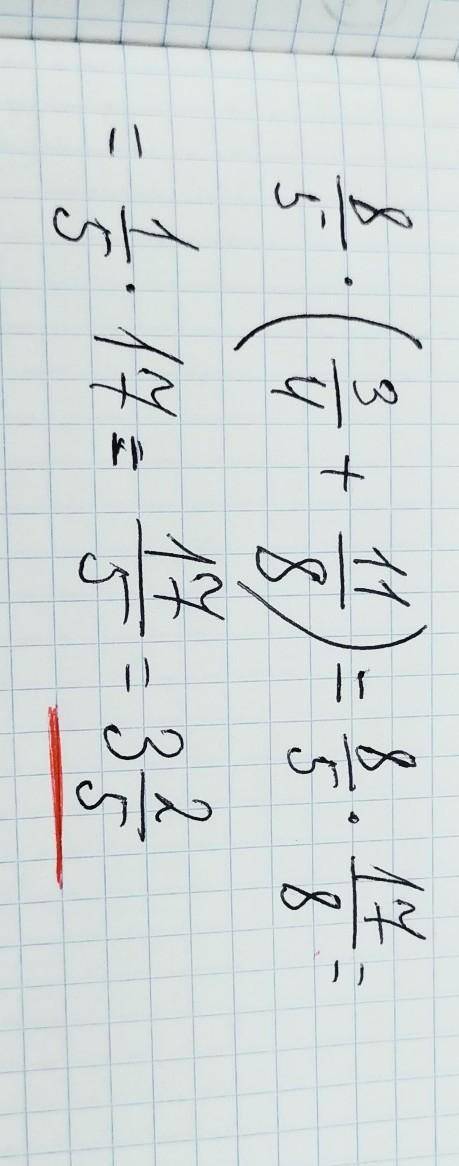 8/5 · (3/4 + 11/8) = 8/5 · 17/8 =
= 1/5 · 17 = 17/5 = 3 2/5